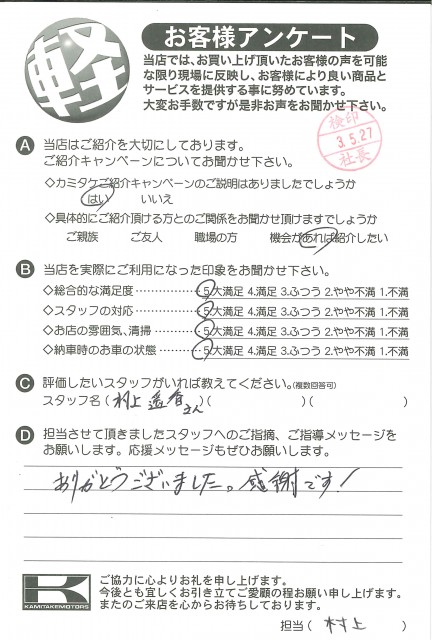 軽
お客様アンケート
当店では、お買い上げ頂いたお客様の声を可能
な限り現場に反映し、お客様により良い商品と
サービスを提供する事に努めています。
大変お手数ですが是非お声をお聞かせ下さい。
検印
3.5.27
社長
A 当店はご紹介を大切にしております。
ご紹介キャンペーンについてお聞かせ下さい。
◇カミタケご紹介キャンペーンのご説明はありましたでしょうか
はい いいえ
◇具体的にご紹介頂ける方とのご関係をお聞かせ頂けますでしょうか
ご親族 ご友人 職場の方 機会があれば紹介したい
B 当店を実際にご利用になった印象をお聞かせ下さい。
◇総合的な満足度……………5.大満足 4.満足 3.ふつう 2.やや不満 1.不満
◇スタッフの対応……………5.大満足 4.満足 3.ふつう 2.やや不満 1.不満
◇お店の雰囲気、清掃………5.大満足 4.満足 3.ふつう 2.やや不満 1.不満
◇納車時のお車の状態………5.大満足 4.満足 3.ふつう 2.やや不満 1.不満
C 評価したいスタッフがいれば教えてください。(複数回答可)
スタッフ名(村上 さん)( )( )
D 担当させて頂きましたスタッフへのご指摘、ご指導メッセージを
お願いします。応援メッセージもぜひお願いします。
ありがとうございました。感謝です!
K
KAMITAKEMOTORS
ご協力に心よりお礼を申し上げます。
今後とも宜しくお引き立てご愛顧の程お願い申し上げます。
またのご来店を心からお待ちしております。
担当(村上)